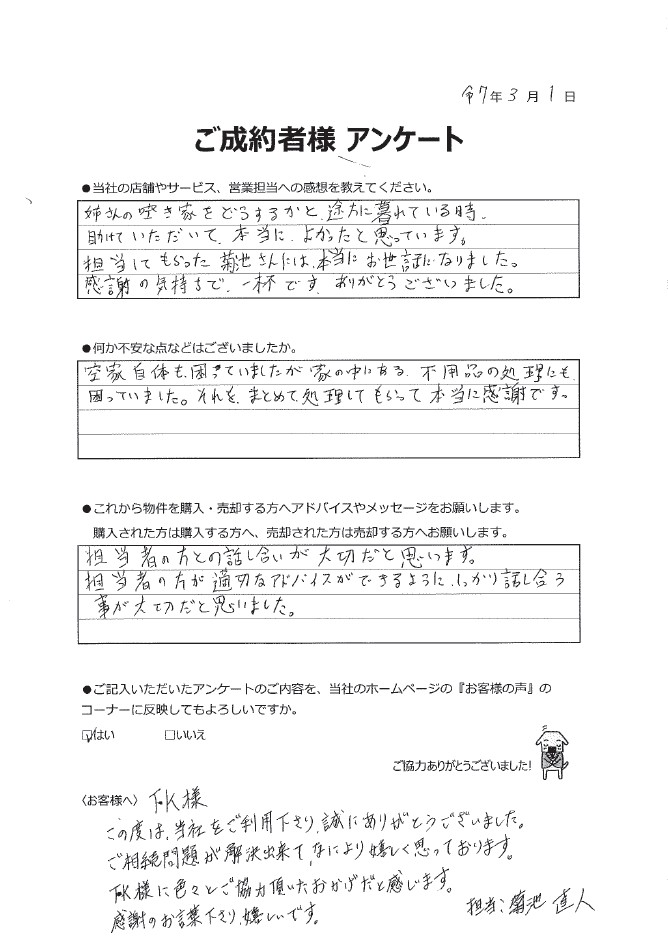 令7年3月1日
ご成約者様 アンケート
●当社の店舗やサービス、営業担当への感想を教えてください。
姉さんの空き家をどうするかと、途方に暮れている時、
助けていただいて、本当に、よかったと思っています。
担当してもらった菊池さんには、本当にお世話になりました。
感謝の気持ちで、一杯です、ありがとうございました。
●何か不安な点などはございましたか。
空家自体も、困っていましたが家の中にある、不用品の処理にも
困っていました。それを、まとめて処理してもらって本当に感謝です。
●これから物件を購入・売却する方へアドバイスやメッセージをお願いします。
購入された方は購入する方へ、売却された方は売却する方へお願いします。
担当者の方との話し合いが大切だと思います。
担当者の方が適切なアドバイスができるように、しっかり話し合う
事が大切だと思いました。
●ご記入いただいたアンケートのご内容を、当社のホームページの『お客様の声』の
コーナーに反映してもよろしいですか。
☑はい □いいえ
ご協力ありがとうございました!
〈お客様へ〉 T.K様
この度は、当社をご利用下さり、誠にありがとうございました。
ご相続問題が解決出来て、なにより嬉しく思っております。
T.K様に色々とご協力頂いたおかげだと感じます。
感謝のお言葉下さり、嬉しいです。
担当:菊池 直人